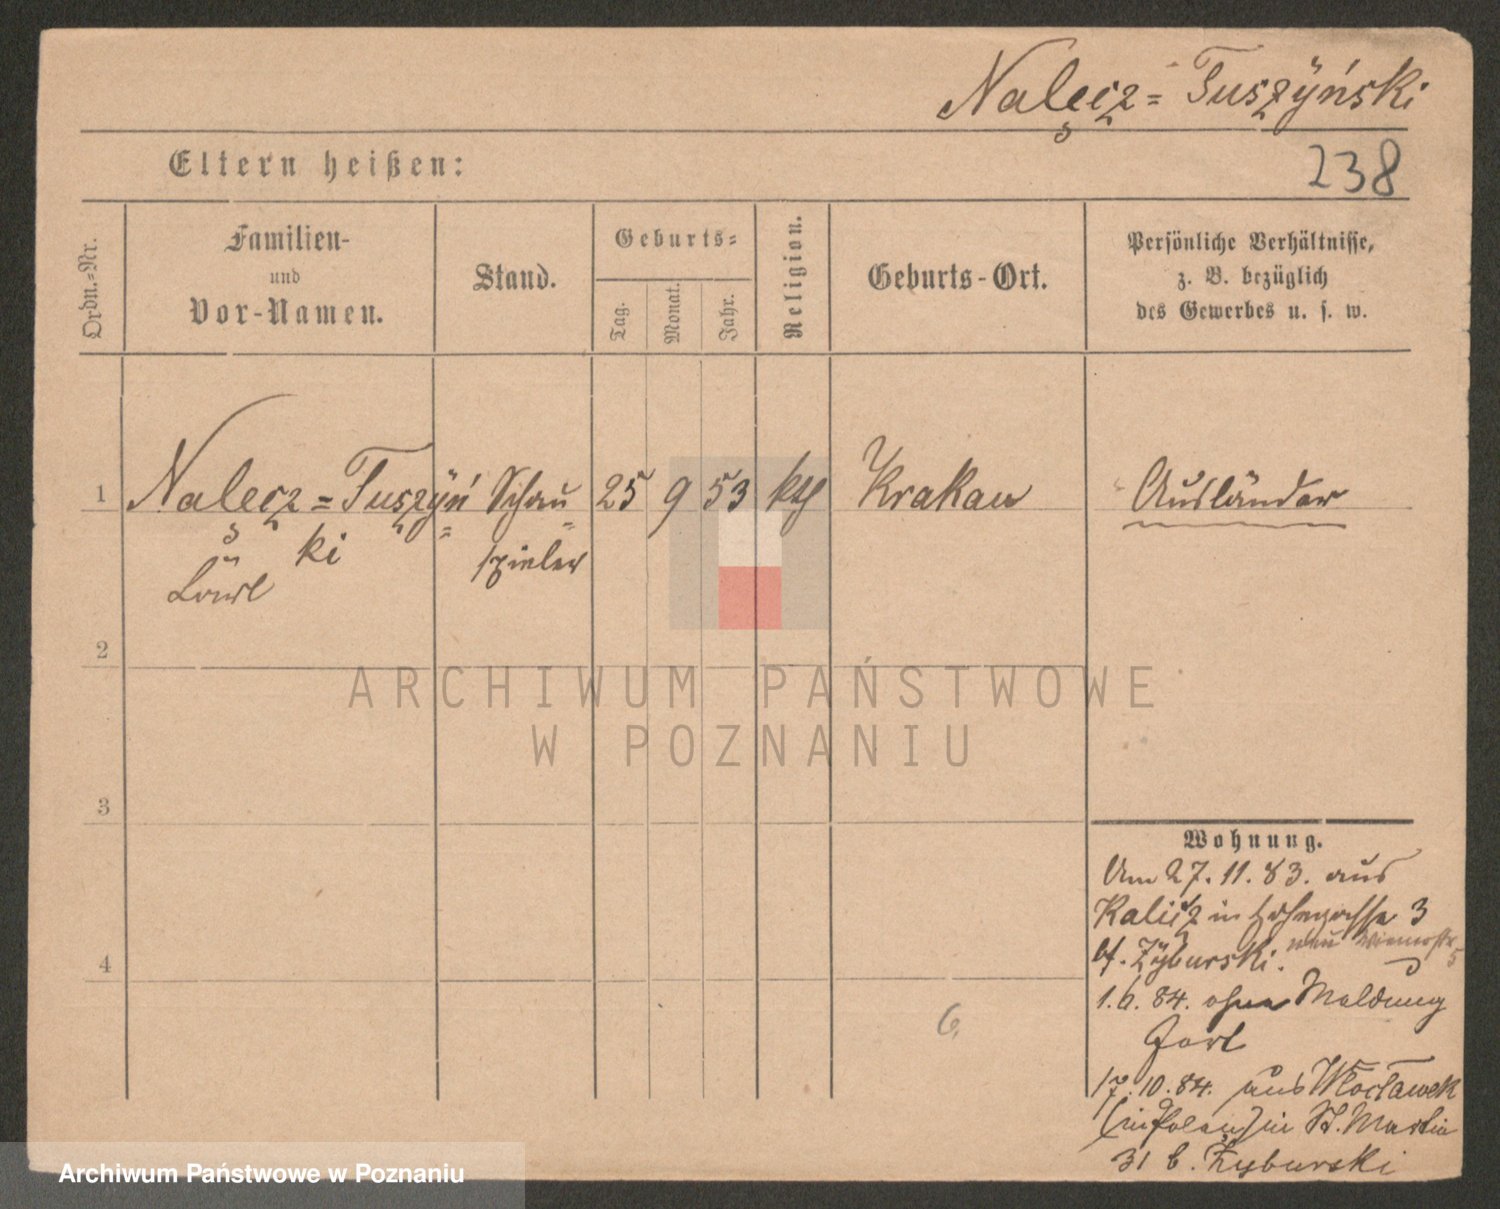 Nalęcz= Tuszÿński
238
Eltern heißen:
Ordn.-Nr.
Familien-
und
Vor-Namen.
Stand.
Geburts-
Tag.
Monat.
Jahr.
Religion.
Geburts-Ort.
Persönliche Verhältnisse,
z. B. bezüglich
des Gewerbes u. s. w.
1
Nalęcz=Tuszÿń=
ski
Schau=
spieler
25 9 53 kth
Krakau
Ausländer
2
ARCHIWUM PAŃSTWOWE
W POZNANIU
3
Wohnung.
Am 27. 11. 83. aus
Kalisz in 3
bf. Zÿburski. neu Wienerstr 5
4
1. 6. 84. ohne Meldung
fort
6,
17. 10. 84. aus Włocławek
(in Polen) in St. Martin
31 b. Zyburski
Archiwum Państwowe w Poznaniu